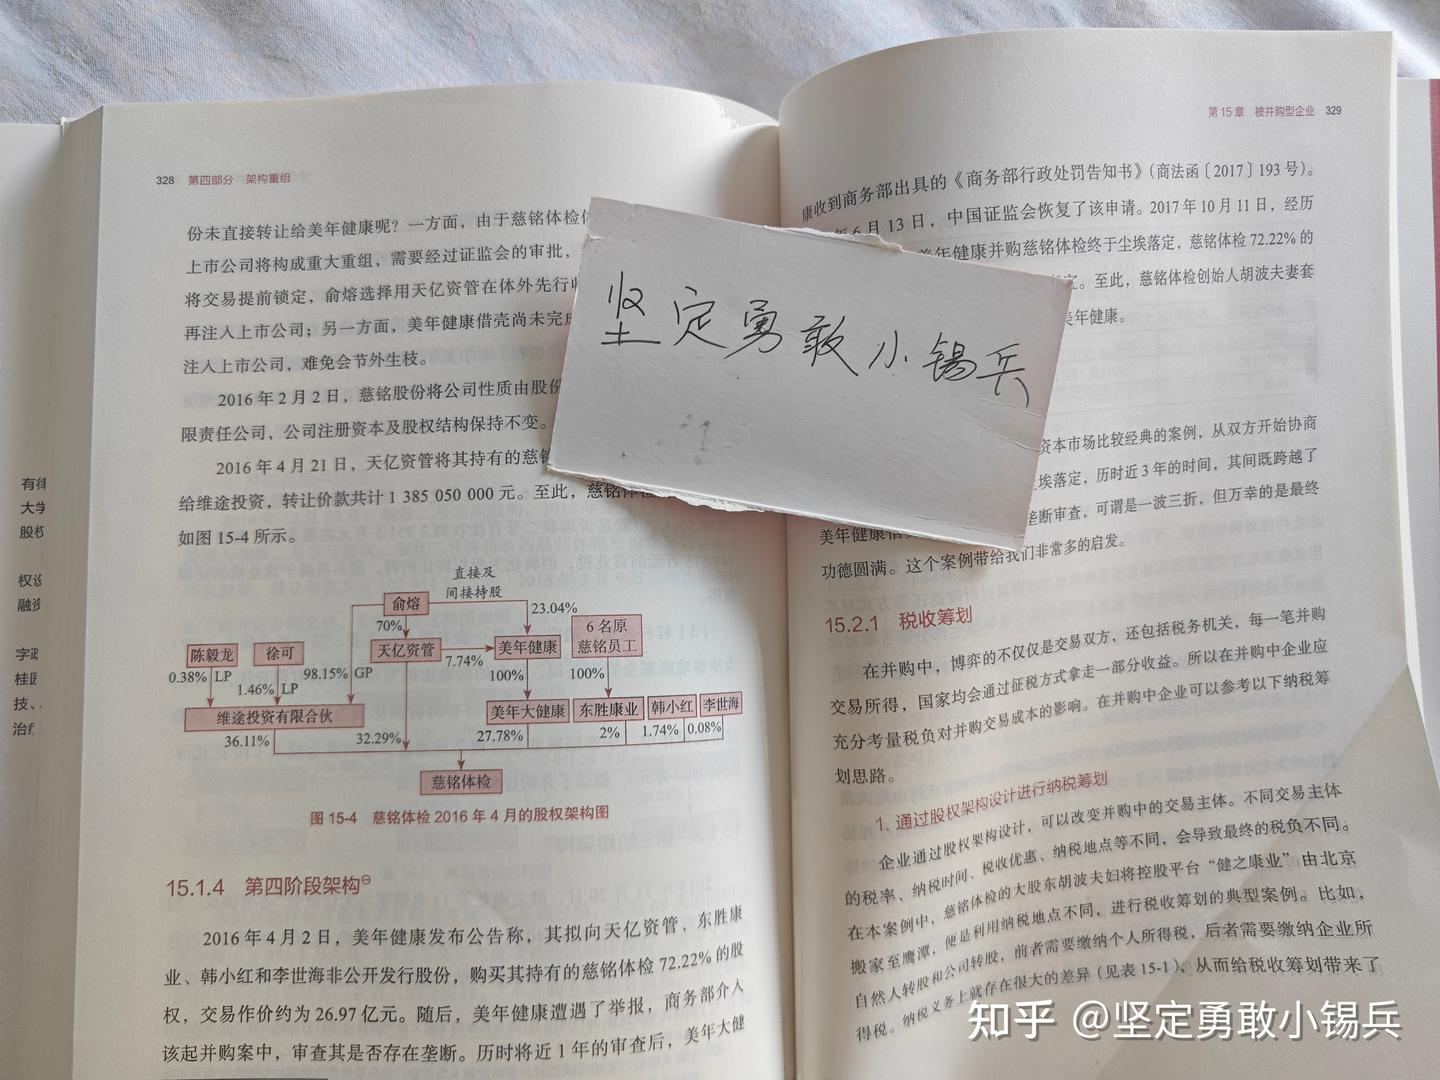 328 第四部分 架构重组
份未直接转让给美年健康呢？一方面，由于慈铭体检
上市公司将构成重大重组，需要经过证监会的审批，
将交易提前锁定，俞熔选择用天亿资管在体外先行
再注入上市公司；另一方面，美年健康借壳尚未完成
注入上市公司，难免会节外生枝。
2016年2月2日，慈铭股份将公司性质由股份
限责任公司，公司注册资本及股权结构保持不变。
2016年4月21日，天亿资管将其持有的慈铭
给维途投资，转让价款共计1 385 050 000元。至此，慈铭体检
如图15-4所示。
直接及
间接持股
俞熔
70%
23.04%
6名原
慈铭员工
陈毅龙
徐可
天亿资管
7.74%
美年健康
0.38% LP
1.46% LP
98.15% GP
100%
100%
维途投资有限合伙
美年大健康
东胜康业
韩小红
李世海
36.11%
32.29%
27.78%
2%
1.74%
0.08%
慈铭体检
图15-4 慈铭体检2016年4月的股权架构图
15.1.4 第四阶段架构㊀
2016年4月2日，美年健康发布公告称，其拟向天亿资管、东胜康
业、韩小红和李世海非公开发行股份，购买其持有的慈铭体检72.22%的股
权，交易作价约为26.97亿元。随后，美年健康遭遇了举报，商务部介入
该起并购案中，审查其是否存在垄断。历时将近1年的审查后，美年大健
第15章 被并购型企业 329
康收到商务部出具的《商务部行政处罚告知书》（商法函〔2017〕193号）。
年6月13日，中国证监会恢复了该申请。2017年10月11日，经历
美年健康并购慈铭体检终于尘埃落定，慈铭体检72.22%的
至此，慈铭体检创始人胡波夫妻套
美年健康。
资本市场比较经典的案例，从双方开始协商
埃落定，历时近3年的时间，其间既跨越了
垄断审查，可谓是一波三折，但万幸的是最终
美年健康
功德圆满。这个案例带给我们非常多的启发。
15.2.1 税收筹划
在并购中，博弈的不仅仅是交易双方，还包括税务机关，每一笔并购
交易所得，国家均会通过征税方式拿走一部分收益。所以在并购中企业应
充分考量税负对并购交易成本的影响。在并购中企业可以参考以下纳税筹
划思路。
1. 通过股权架构设计进行纳税筹划
企业通过股权架构设计，可以改变并购中的交易主体。不同交易主体
的税率、纳税时间、税收优惠、纳税地点等不同，会导致最终的税负不同。
在本案例中，慈铭体检的大股东胡波夫妇将控股平台“健之康业”由北京
搬家至鹰潭，便是利用纳税地点不同，进行税收筹划的典型案例。比如，
自然人转股和公司转股，前者需要缴纳个人所得税，后者需要缴纳企业所
得税。纳税义务上就存在很大的差异（见表15-1），从而给税收筹划带来了
坚定勇敢小锡兵
大学
股权
融资
桂园
技、
知乎 @坚定勇敢小锡兵